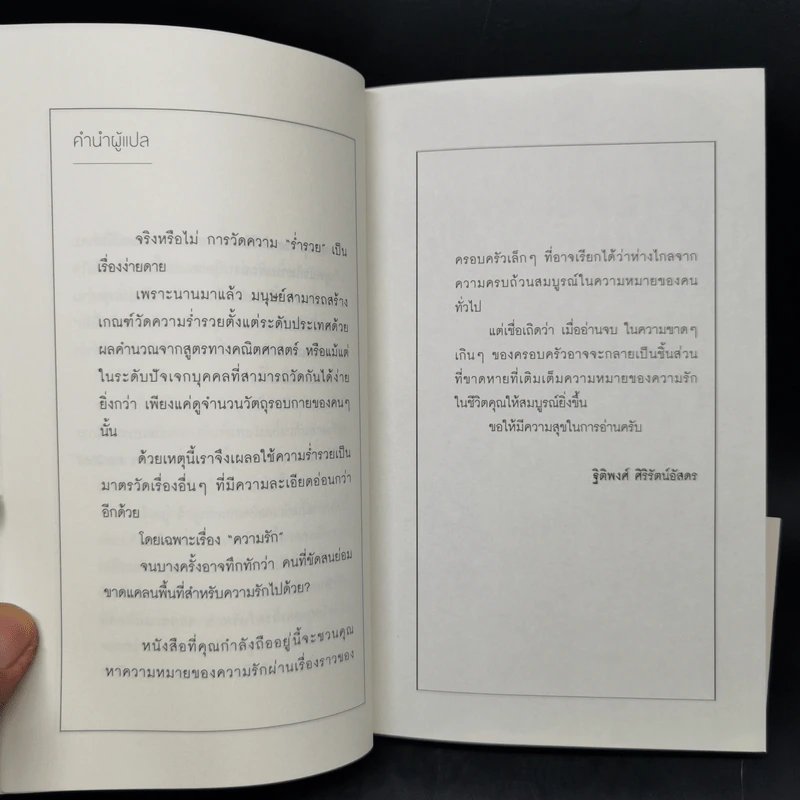 คำนำผู้แปล
จริงหรือไม่ การวัดความ “ร่ำรวย” เป็น
เรื่องง่ายดาย
เพราะนานมาแล้ว มนุษย์สามารถสร้าง
เกณฑ์วัดความร่ำรวยตั้งแต่ระดับประเทศด้วย
ผลคำนวณจากสูตรทางคณิตศาสตร์ หรือแม้แต่
ในระดับปัจเจกบุคคลที่สามารถวัดกันได้ง่าย
ยิ่งกว่า เพียงแค่ดูจำนวนวัตถุรอบกายของคนๆ
นั้น
ด้วยเหตุนี้เราจึงเผลอใช้ความร่ำรวยเป็น
มาตรวัดเรื่องอื่นๆ ที่มีความละเอียดอ่อนกว่า
อีกด้วย
โดยเฉพาะเรื่อง “ความรัก”
จนบางครั้งอาจทึกทักว่า คนที่ขัดสนย่อม
ขาดแคลนพื้นที่สำหรับความรักไปด้วย?
หนังสือที่คุณกำลังถืออยู่นี้จะชวนคุณ
หาความหมายของความรักผ่านเรื่องราวของ
ครอบครัวเล็กๆ ที่อาจเรียกได้ว่าห่างไกลจาก
ความครบถ้วนสมบูรณ์ในความหมายของคน
ทั่วไป
แต่เชื่อเถิดว่า เมื่ออ่านจบ ในความขาดๆ
เกินๆ ของครอบครัวอาจจะกลายเป็นชิ้นส่วน
ที่ขาดหายที่เติมเต็มความหมายของความรัก
ในชีวิตคุณให้สมบูรณ์ยิ่งขึ้น
ขอให้มีความสุขในการอ่านครับ
ฐิติพงศ์ ศิริรัตน์อัสดร